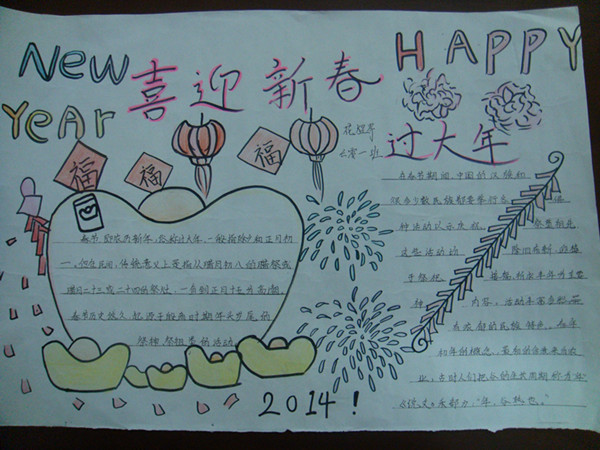 New
YeAr
喜迎新春
HAPPY
过大年
六零一班
福
福
福
春节,即农历新年,俗称过大年,一般指除夕和正月初
一。但在民间,传统意义上是指从腊月初八的腊祭或
腊月二十三或二十四的祭灶,一直到正月十五为高潮
春节历史悠久,起源于殷商时期年头岁尾的
祭神祭祖的活动
在春节期间,中国的汉族和
很多少数民族都要举行各
种活动以示庆祝。
祭祀祖先
这些活动均
除旧布新
丰年
内容,活动丰富多彩
浓郁的民族特色
和年的概念,最初的含义来自农
业,古时人们把谷的生长周期称为"年"
《说文·禾部》,"年,谷熟也。"
2014!